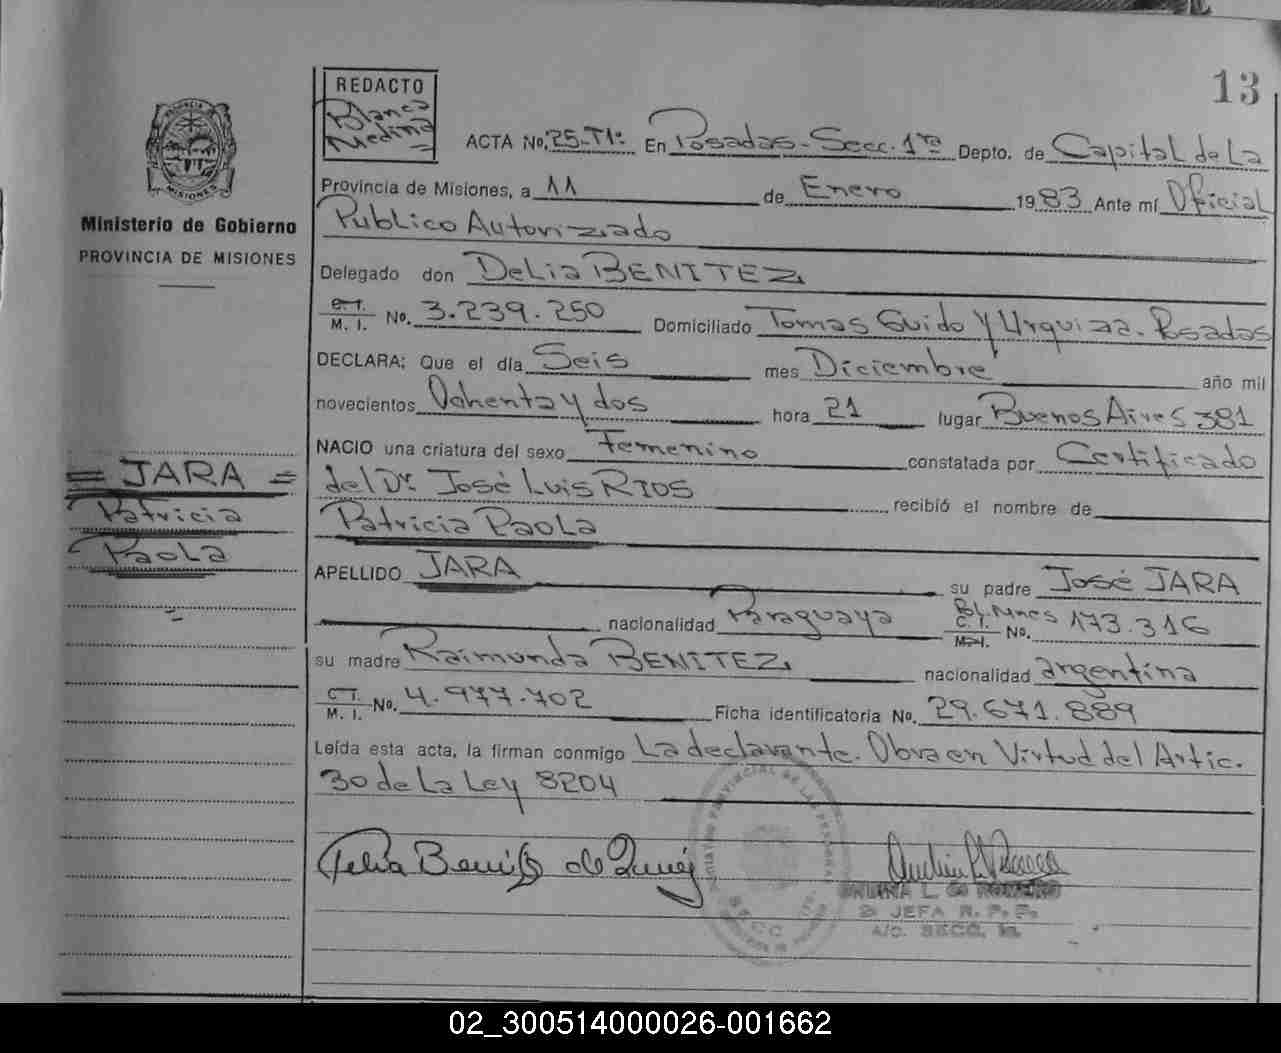 13
REDACTO
Blanca
Medina
PROVINCIA
MISIONES
Ministerio de Gobierno
PROVINCIA DE MISIONES
ACTA No. 25-T1º En Posadas-Secc. 1ra Depto. de Capital de La
Provincia de Misiones, a 11 de Enero 1983 Ante mí Oficial
Publico Autorizado
Delegado don Delia BENITEZ
C. I. M. I. No. 3.239.250 Domiciliado Tomas Guido y Urquiza. Posadas
DECLARA; Que el día Seis mes Diciembre año mil
novecientos Ochenta y dos hora 21 lugar Buenos Aires 381
NACIO una criatura del sexo Femenino constatada por Certificado
del Dr. José Luis RIOS recibió el nombre de
Patricia Paola
APELLIDO JARA su padre José JARA
nacionalidad Paraguaya C. I. M. I. No. 173.316
su madre Raimunda BENITEZ nacionalidad argentina
C. I. M. I. No. 4.977.702 Ficha identificatoria No. 29.671.889
Leída esta acta, la firman conmigo La declarante. Obra en Virtud del Artic.
30 de La Ley 8204
= JARA =
Patricia
Paola
Delia Benitez de
L. de ROMERO
JEFA R. P. P.
A/C. SECC. 1a.
SECC
02_300514000026-001662